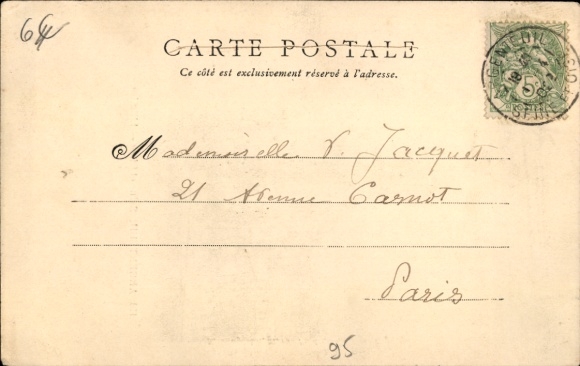 64
CARTE POSTALE
Ce côté est exclusivement réservé à l'adresse.
5
Mademoiselle V. Jacquet
21 Avenue Carnot
Paris
95